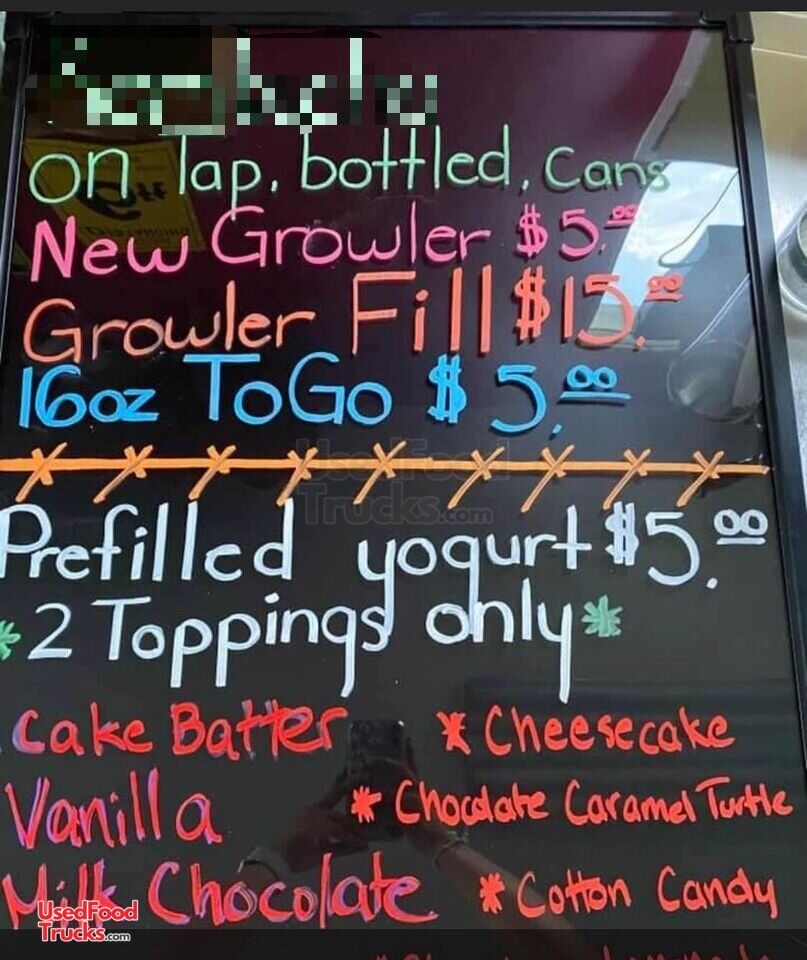 on Tap, bottled, Cans
New Growler $5.00
Growler Fill $15.00
16oz ToGo $5.00
UsedFood
Trucks.com
Prefilled yogurt $5.00
*2 Toppings only*
Cake Batter * Cheesecake
Vanilla * Chocolate Caramel Turtle
Milk Chocolate * Cotton Candy
UsedFood
Trucks.com